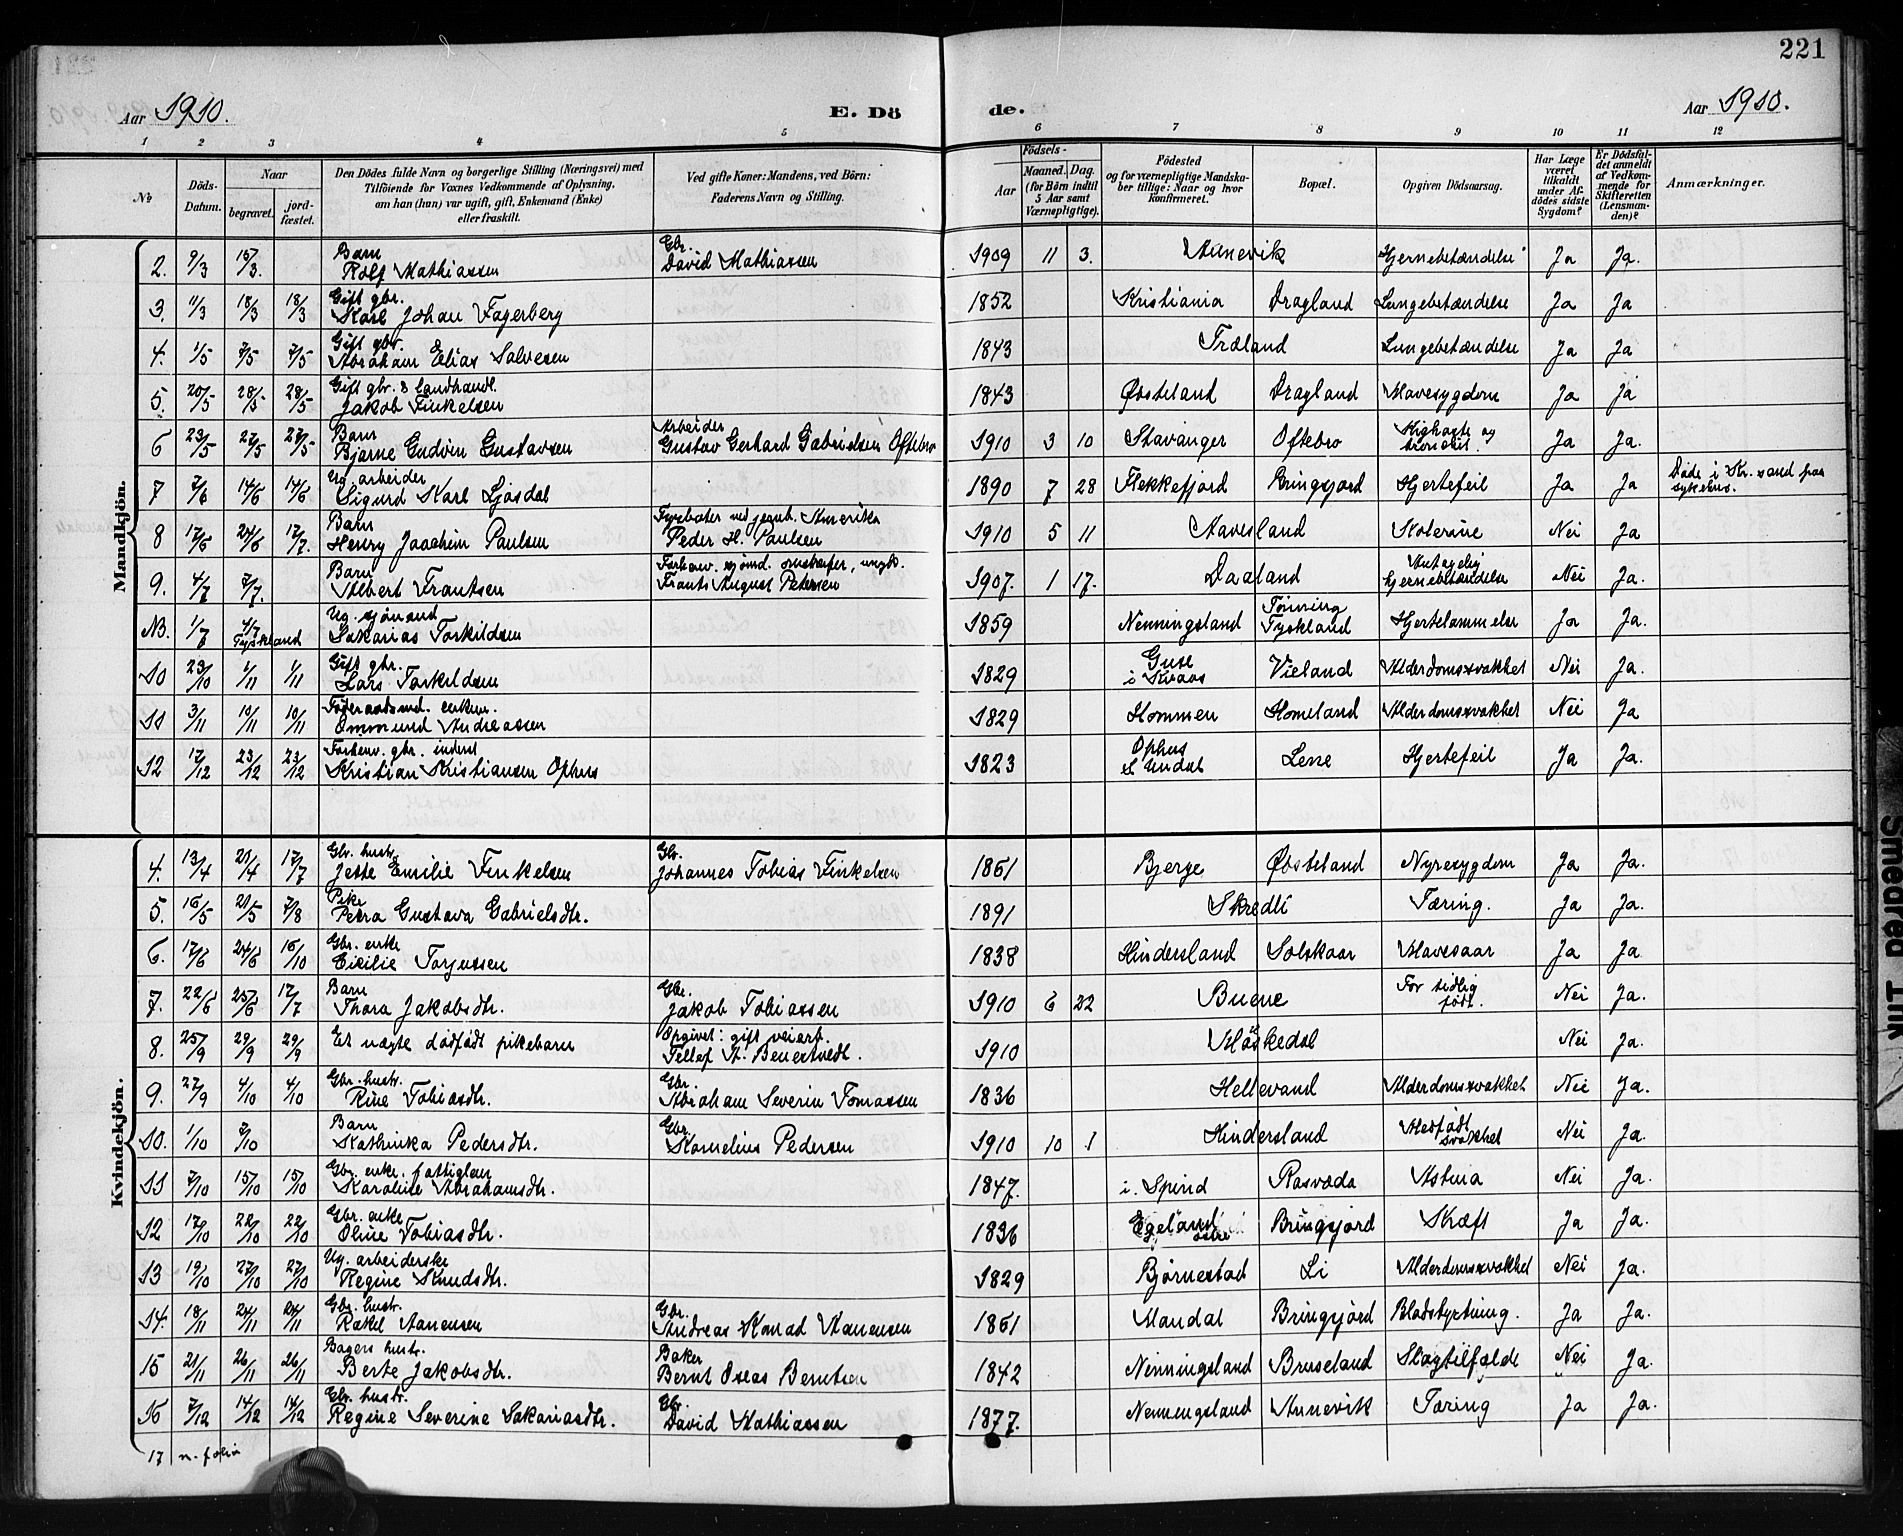 221
Aar 1910.
E. Döde.
Aar 1910.
1 2 3 4 5 6 7 8 9 10 11 12
No
Döds-Datum.
Naar
begravet.
jordfæstet.
Den Dödes fulde Navn og borgerlige Stilling (Næringsvei) med
Tilföiende for Voxnes Vedkommende af Oplysning,
om han (hun) var ugift, gift, Enkemand (Enke)
eller fraskilt.
Ved gifte Koner: Mandens, ved Börn:
Faderens Navn og Stilling.
Födsels-
Aar
Maaned. Dag.
(for Börn indtil
5 Aar samt
Værnepligtige).
Födested
og for værnepligtige Mandskaber tillige: Naar og hvor
konfirmeret.
Bopæl.
Opgiven Dödsaarsag.
Har Læge
været
tilkaldt
under Afdödes sidste
Sygdom?
Er Dödsfaldet anmeldt
af Vedkommende for
Skifteretten
(Lensmanden)?
Anmærkninger.
Mandkjön.
2. 9/3 15/3. Barn Rolf Mathiassen Gbr. David Mathiassen 1909 11 3. Aunevik Hjernebetændelse Ja Ja.
3. 11/3 18/3 18/3 Gift gbr. Karl Johan Fagerberg 1852 Kristiania Dragland Lungebetændelse Ja Ja
4. 1/5 7/5 7/5 Gift gbr. Abraham Elias Salvesen 1843 Træland Lungebetændelse Ja Ja
5. 20/5 28/5 28/5 Gift gbr. & landhandl. Jakob Finkelsen 1843 Øksteland Dragland Mavesygdom Ja Ja
6 23/5 27/5 27/5 Barn Bjarne Gudvin Gustavsen Arbeider Gustav Gerhard Gabrielsen Oftebro 1910 3 10 Stavanger Oftebro Kighoste og bronkit. Ja Ja.
7 7/6 14/6 14/6 Ug. arbeider Sigurd Karl Ljosdal 1890 7 28 Flekkefjord Bringsjord Hjertefeil Ja Ja Døde i Kr.sand paa sykehus.
8 17/6 24/6 17/7. Barn Henry Joachim Paulsen Fyrbøter ved jernb. Amerika Peder H. Paulsen 1910 5 11 Aavesland Kolerine Nei Ja
9. 4/7 7/7. Barn Albert Frantsen Forhenv. sjømd. Frants August Petersen 1907. 1 17. Daaland hjernebetændelse Nei Ja.
NB. 1/7 4/7 Tyskland Ug. sjømand Sakarias Torkildsen 1859 Nenningsland Tønning Tyskland Hjertelammelse Ja Ja.
10 23/10 1/11 1/11 Gift gbr. Lars Torkildsen 1829 Guse i Kvaas Vieland Alderdomssvakhet Nei Ja.
11 3/11 10/11 10/11 Føderaadsmd. enkem. Ommund Andreassen 1829 Hommen Homeland Alderdomssvakhet Nei Ja
12 17/12 23/12 23/12 Forhenv. gbr. inderst Kristian Kristiansen Ophus 1823 Ophus S. Undal Lene Hjertefeil Ja Ja.
Kvindekjön.
4. 13/4 21/4 17/7 Gbr. hustr. Jette Emilie Finkelsen Gbr. Johannes Tobias Finkelsen 1861 Bjerge Øksteland Nyresygdom Ja Ja.
5. 16/5 21/5 7/8 Pike Petra Gustava Gabrielsdtr. 1891 Skredli Tæring. Ja Ja.
6. 17/6 24/6 16/10 Gbr. enke Cicilie Torjussen 1838 Hindersland Solskaar Mavesaar Ja Ja
7. 22/6 25/6 17/7 Barn Thora Jakobsdtr. Gbr. Jakob Tobiassen 1910 6 22 Buene For tidlig født. Nei Ja.
8. 25/9 29/9 29/9 Et uægte dødfødt pikebarn Opgivet: gift veiarb. Tellef A. Benestvedt. 1910 Møskedal Nei Ja.
9. 27/9 4/10 4/10 Gbr. hustr. Rine Tobiasdtr. Gbr. Abraham Severin Tomassen 1836 Hellevand Alderdomssvakhet Nei Ja.
10. 1/10 7/10 Barn Kathinka Pedersdtr. Gbr. Kornelius Pedersen 1910 10 1 Hindersland Medfødt svakhet Nei Ja.
11 7/10 15/10 15/10 Gbr. enke. fattiglem Karoline Abrahamsdtr. 1847. i Spind Rasvåda Astma Nei Ja.
12 17/10 22/10 22/10 Gbr. enke Oline Tobiasdtr. 1836 Egeland Bringsjord Kræft Ja Ja.
13 19/10 27/10 27/10 Ug. arbeiderske Regine Knudsdtr. 1829 Bjørnestad Li Alderdomssvakhet Nei Ja.
14. 18/11 24/11 24/11 Gbr. hustr. Rakel Aanensen Gbr. Andreas Konrad Aanensen 1861 Mandal Bringsjord Blodstyrtning. Ja Ja.
15 21/11 26/11 26/11 Bagers hustr. Berte Jakobsdtr. Baker Bernt Oseas Berntsen 1842 Nenningsland Bruseland Slagtilfælde Nei Ja.
16 7/12 14/12 14/12 Gbr. hustr. Regine Severine Sakariasdtr. Gbr. David Mathiassen 1877. Nenningsland Aunevik Tæring Ja Ja.
17 n. folio